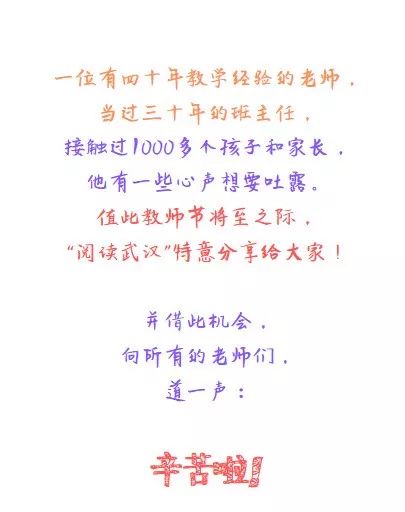 一位有四十年教学经验的老师，
当过三十年的班主任，
接触过1000多个孩子和家长，
他有一些心声想要吐露。
值此教师节将至之际，
“阅读武汉”特意分享给大家！
并借此机会，
向所有的老师们，
道一声：
辛苦啦！